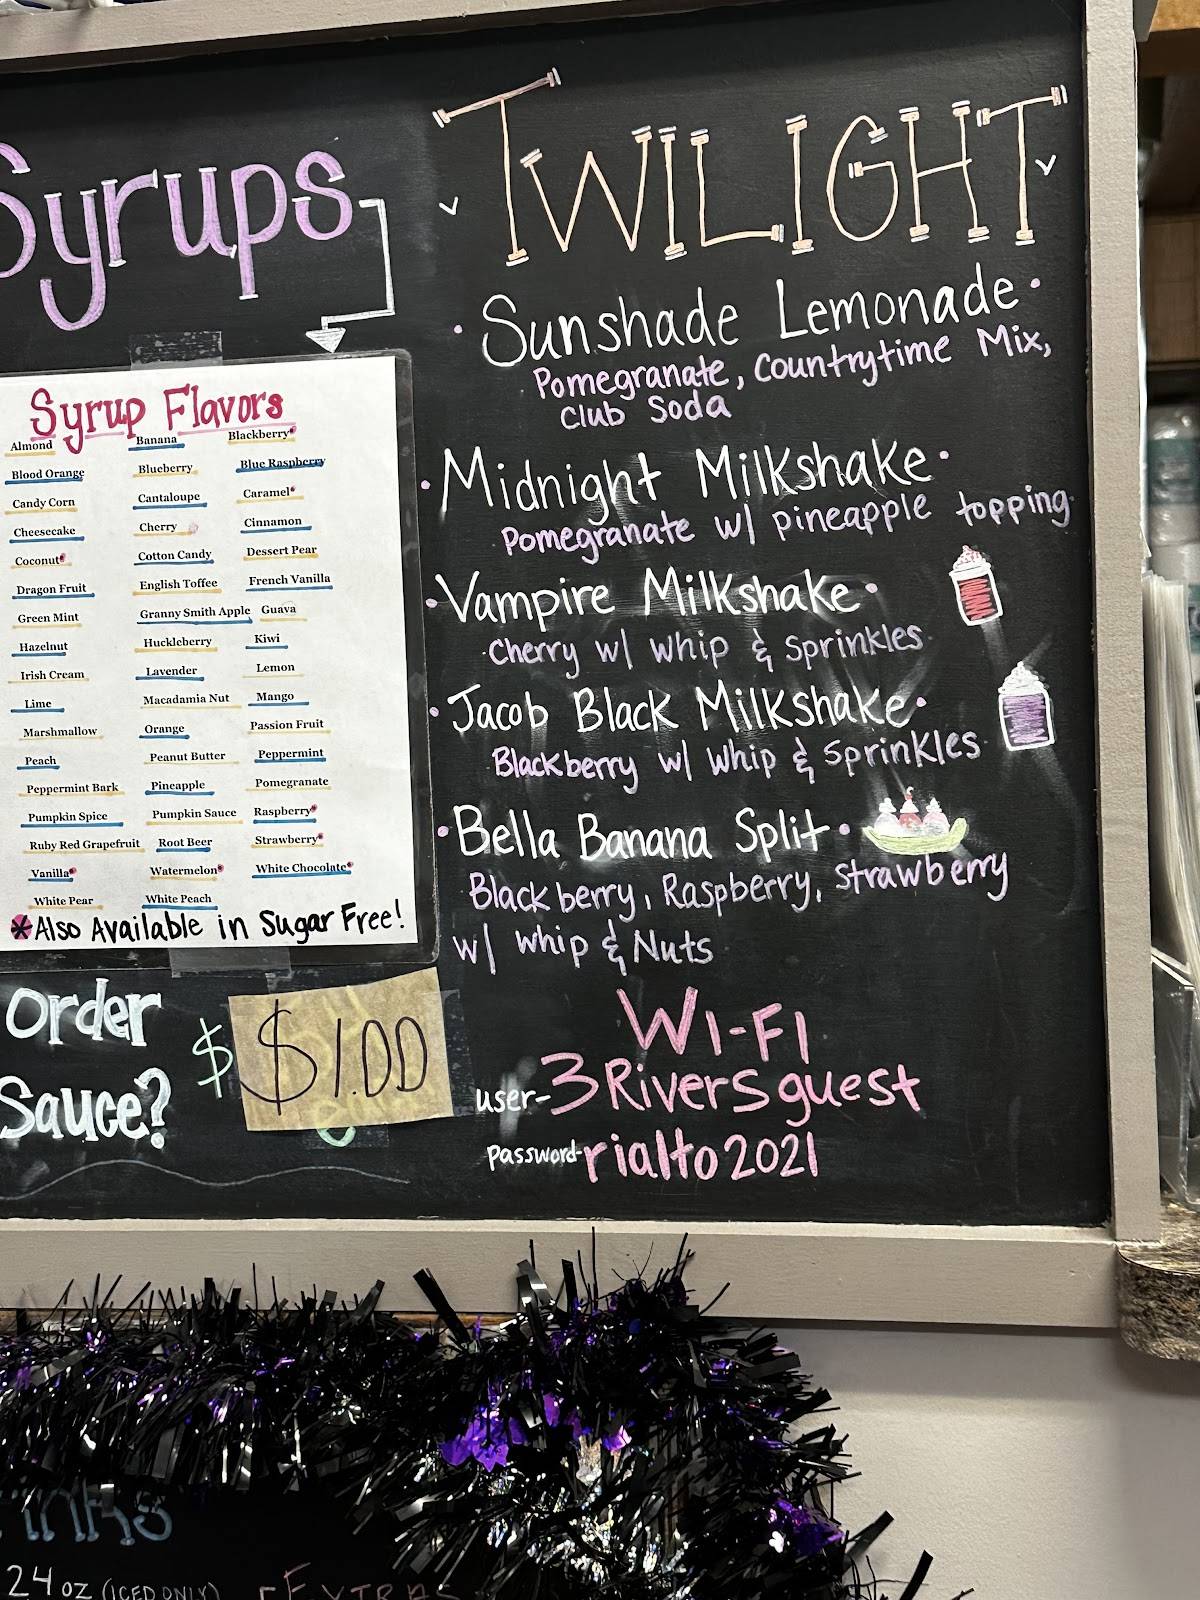 Syrups
Syrup Flavors
Almond Banana Blackberry*
Blood Orange Blueberry Blue Raspberry
Candy Corn Cantaloupe Caramel*
Cheesecake Cherry Cinnamon
Coconut* Cotton Candy Dessert Pear
Dragon Fruit English Toffee French Vanilla
Green Mint Granny Smith Apple Guava
Hazelnut Huckleberry Kiwi
Irish Cream Lavender Lemon
Lime Macadamia Nut Mango
Marshmallow Orange Passion Fruit
Peach Peanut Butter Peppermint
Peppermint Bark Pineapple Pomegranate
Pumpkin Spice Pumpkin Sauce Raspberry*
Ruby Red Grapefruit Root Beer Strawberry*
Vanilla* Watermelon* White Chocolate*
White Pear White Peach
*Also Available in Sugar Free!
Order
Sauce?
$ $1.00
TWILIGHT
· Sunshade Lemonade ·
Pomegranate, Countrytime Mix,
Club Soda
· Midnight Milkshake ·
Pomegranate w/ pineapple topping
· Vampire Milkshake ·
Cherry w/ whip & Sprinkles
· Jacob Black Milkshake ·
Blackberry w/ whip & Sprinkles
· Bella Banana Split ·
Blackberry, Raspberry, Strawberry
w/ whip & Nuts
WI-FI
user-3Riversguest
password-rialto2021
24oz (ICED ONLY) EXTRAS